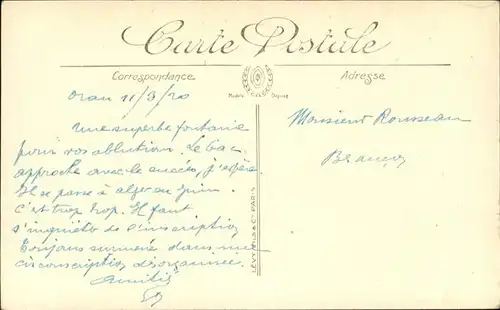 Carte Postale
Correspondance
Adresse
Modèle Déposé
Oran 11/3/20
Une superbe fontaine
pour vos ablutions. Le bac
approche avec le succès, j'espère.
Il se passe à alger en juin.
c'est trop trop. Il faut
s'inquiéter de l'inscription
Toujours surmené dans une
circonscription désorganisée.
Amitiés
Monsieur Rousseau
LÉVY FILS & Cie PARIS